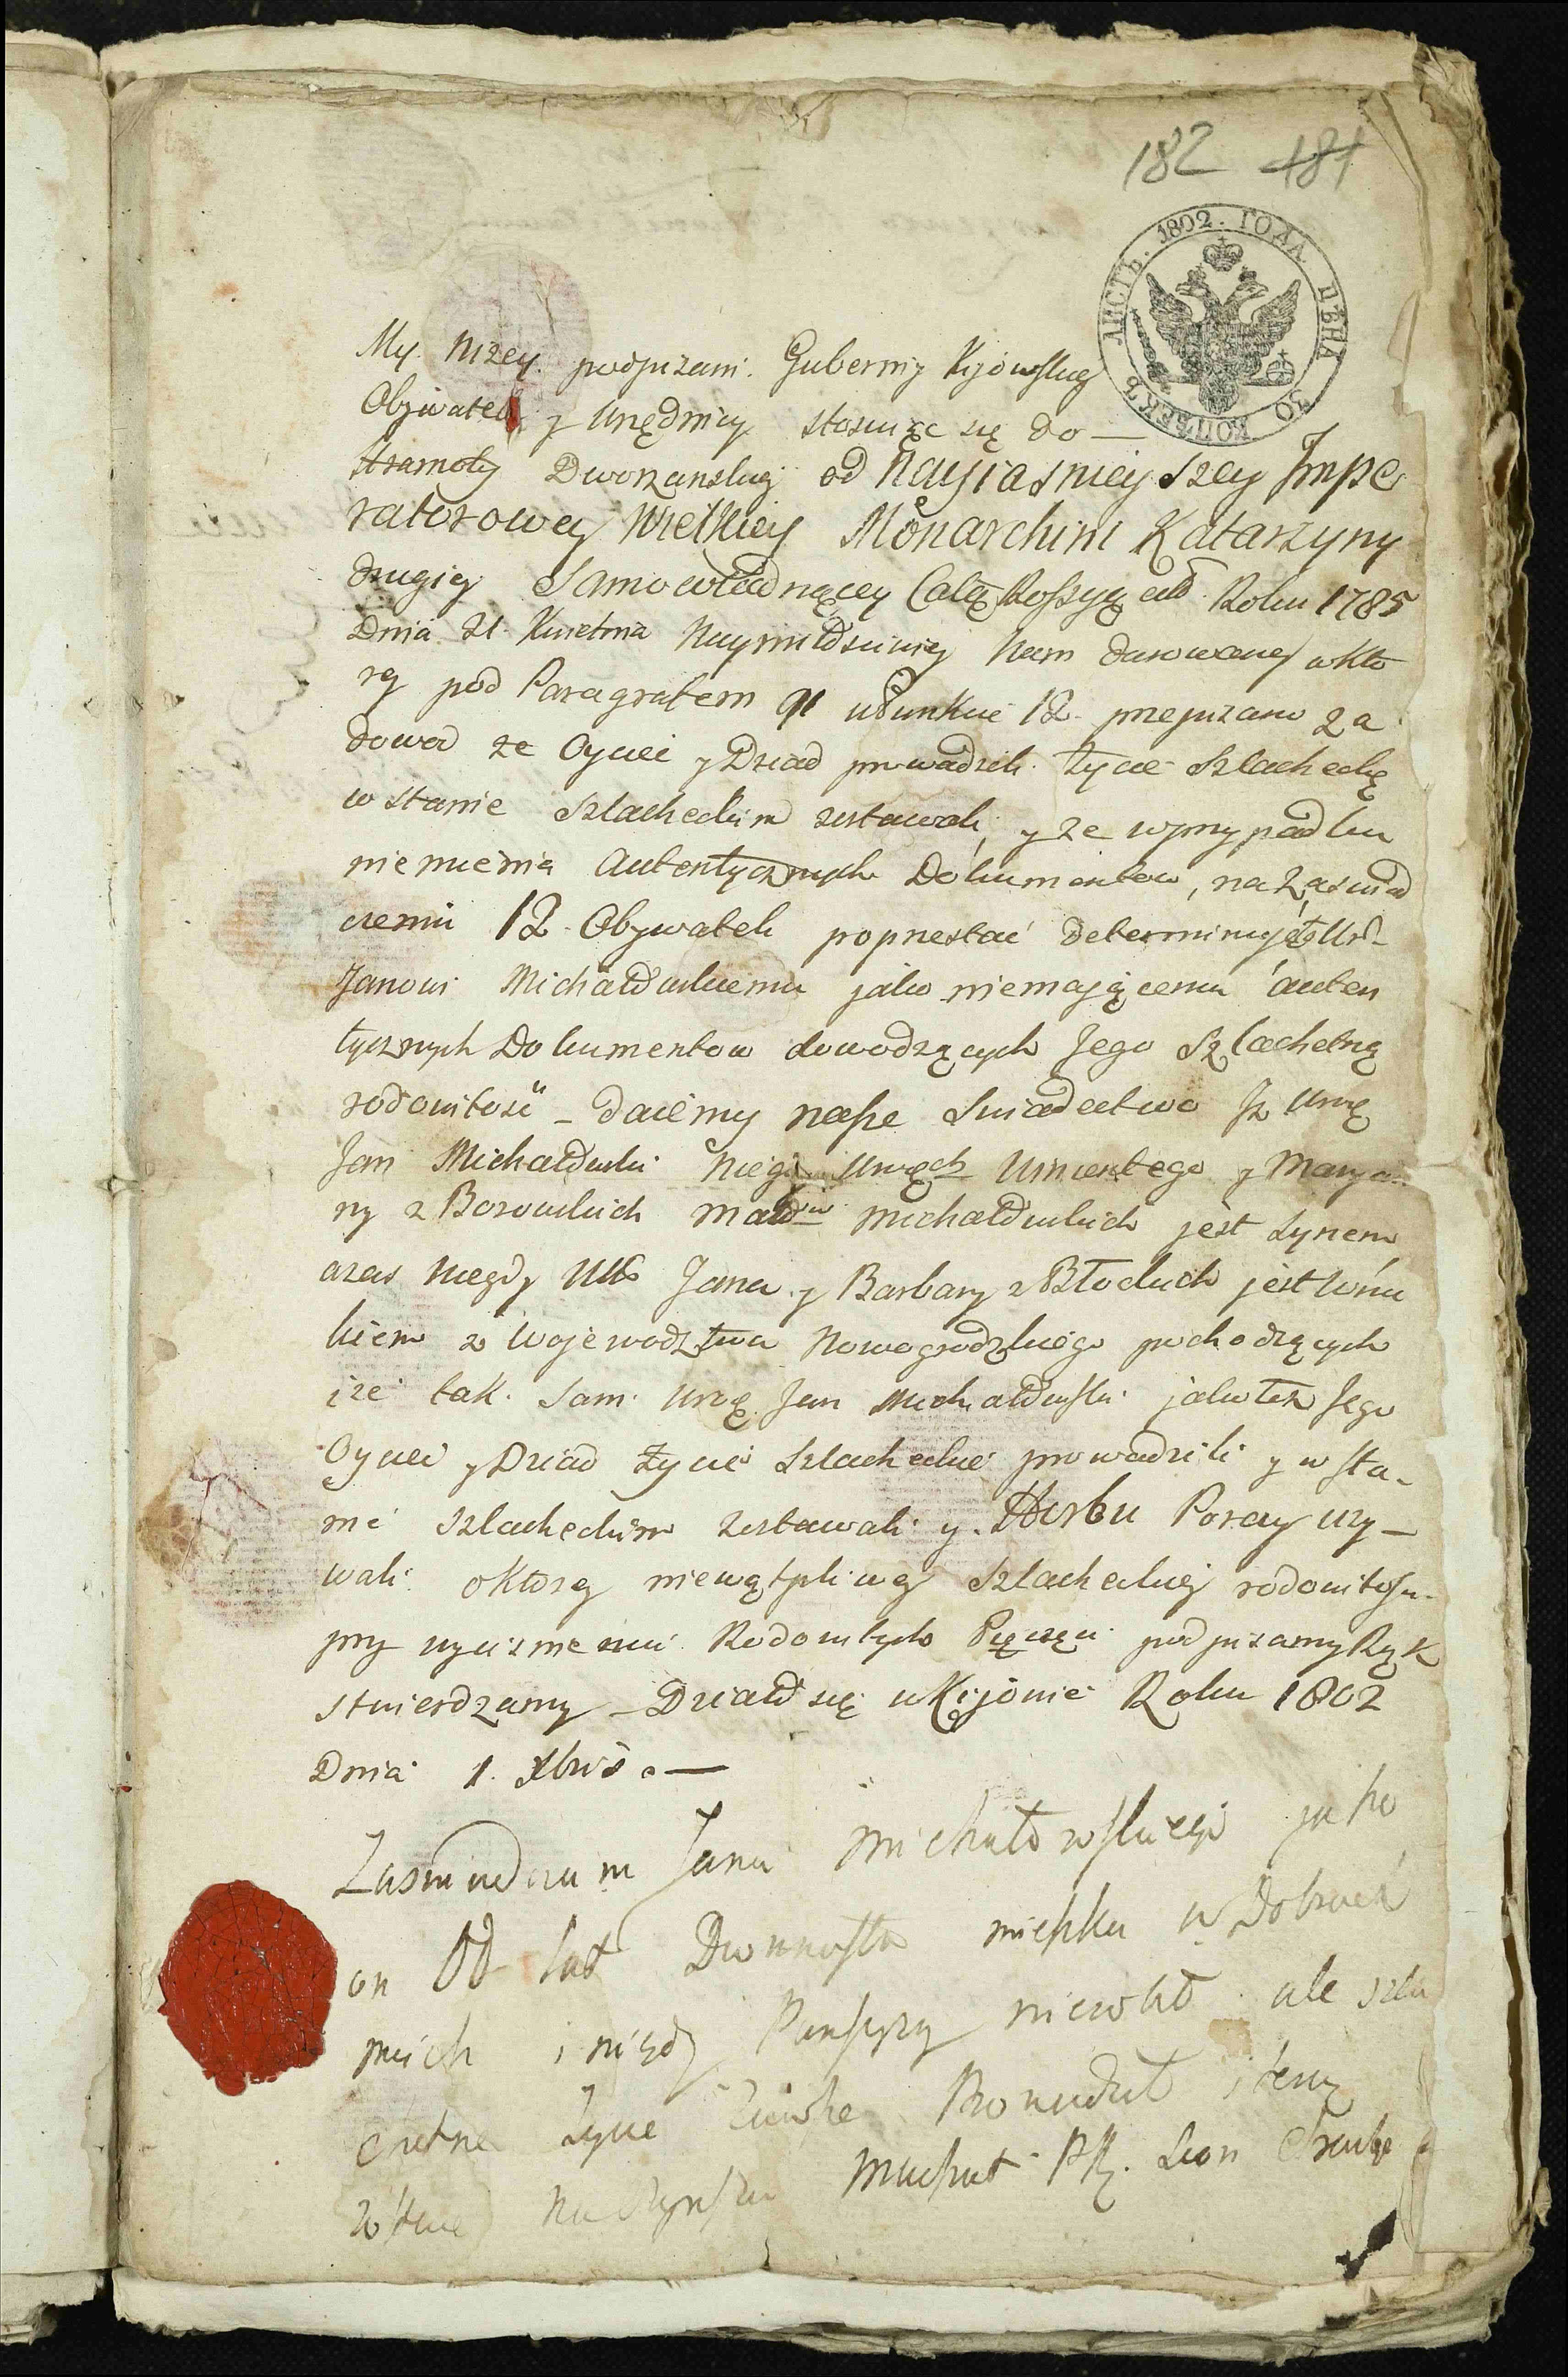 182 181
ЛИСТЪ. 1802. ГОДА ЦѢНА 30 КОПѢЕКЪ
My Niżey podpisani Gubernij Kijowskiey
Obywatele y Urzędnicy stosuiąc się do —
Hramoty Dworzanskiej od Nayiaśnieyszey Impe
ratorowey Wielkiey Monarchini Katarzyny
drugiey Samowładnącey Całą Rossyą &. Roku 1785
Dnia 21. Kwietnia Naymiłościwiej Nam darowaney w któ
rey pod Paragrafem 91 w Punkcie 12. przepisano za
dowod że Oyciec y Dziad prowadzili życie Szlacheckie
w stanie Szlacheckim zostawali, y że w przypadku
niemienia Autentycznych Dokumentow, na zaswiad
czeniu 12. Obywateli poprzestać determinuje
Janowi Michałowskiemu jako niemającemu auten
tycznych Dokumentow dowodzących Jego Szlachetną
rodowitość — daiemy nasze Swiadectwo Iż Urog
Jan Michałowski niegdy Urogch Wincentego y Marya
ny z Borowskich Małżw Michałowskich jest Synem
azas niegdy Jana y Barbary z Błockich jest Wnu
kiem z Wojewodztwa Nowogrodzkiego pochodzących
iże tak Sam Urog Jan Michałowski jako też Jego
Oyciec y Dziad życie Szlacheckie prowadzili y w sta-
nie Szlacheckim zostawali y Herbu Poray uży-
wali o ktorey niewątpliwey Szlacheckiej rodowitości
przy wyciśnieniu Rodowitych Pięczęci podpisamy Rąk
stwierdzamy — Działo się w Kijowie Roku 1802
Dnia 1. Xbris. —
Zaswiadczam Jana Michałowskiego jako
on Od lat Dwunastu mieszka w Dobrach
moich i nigdy Panszyzny nierobił ale szla
chetne życie zawsze Prowadził i
na Czynszu Mieszkał Leon